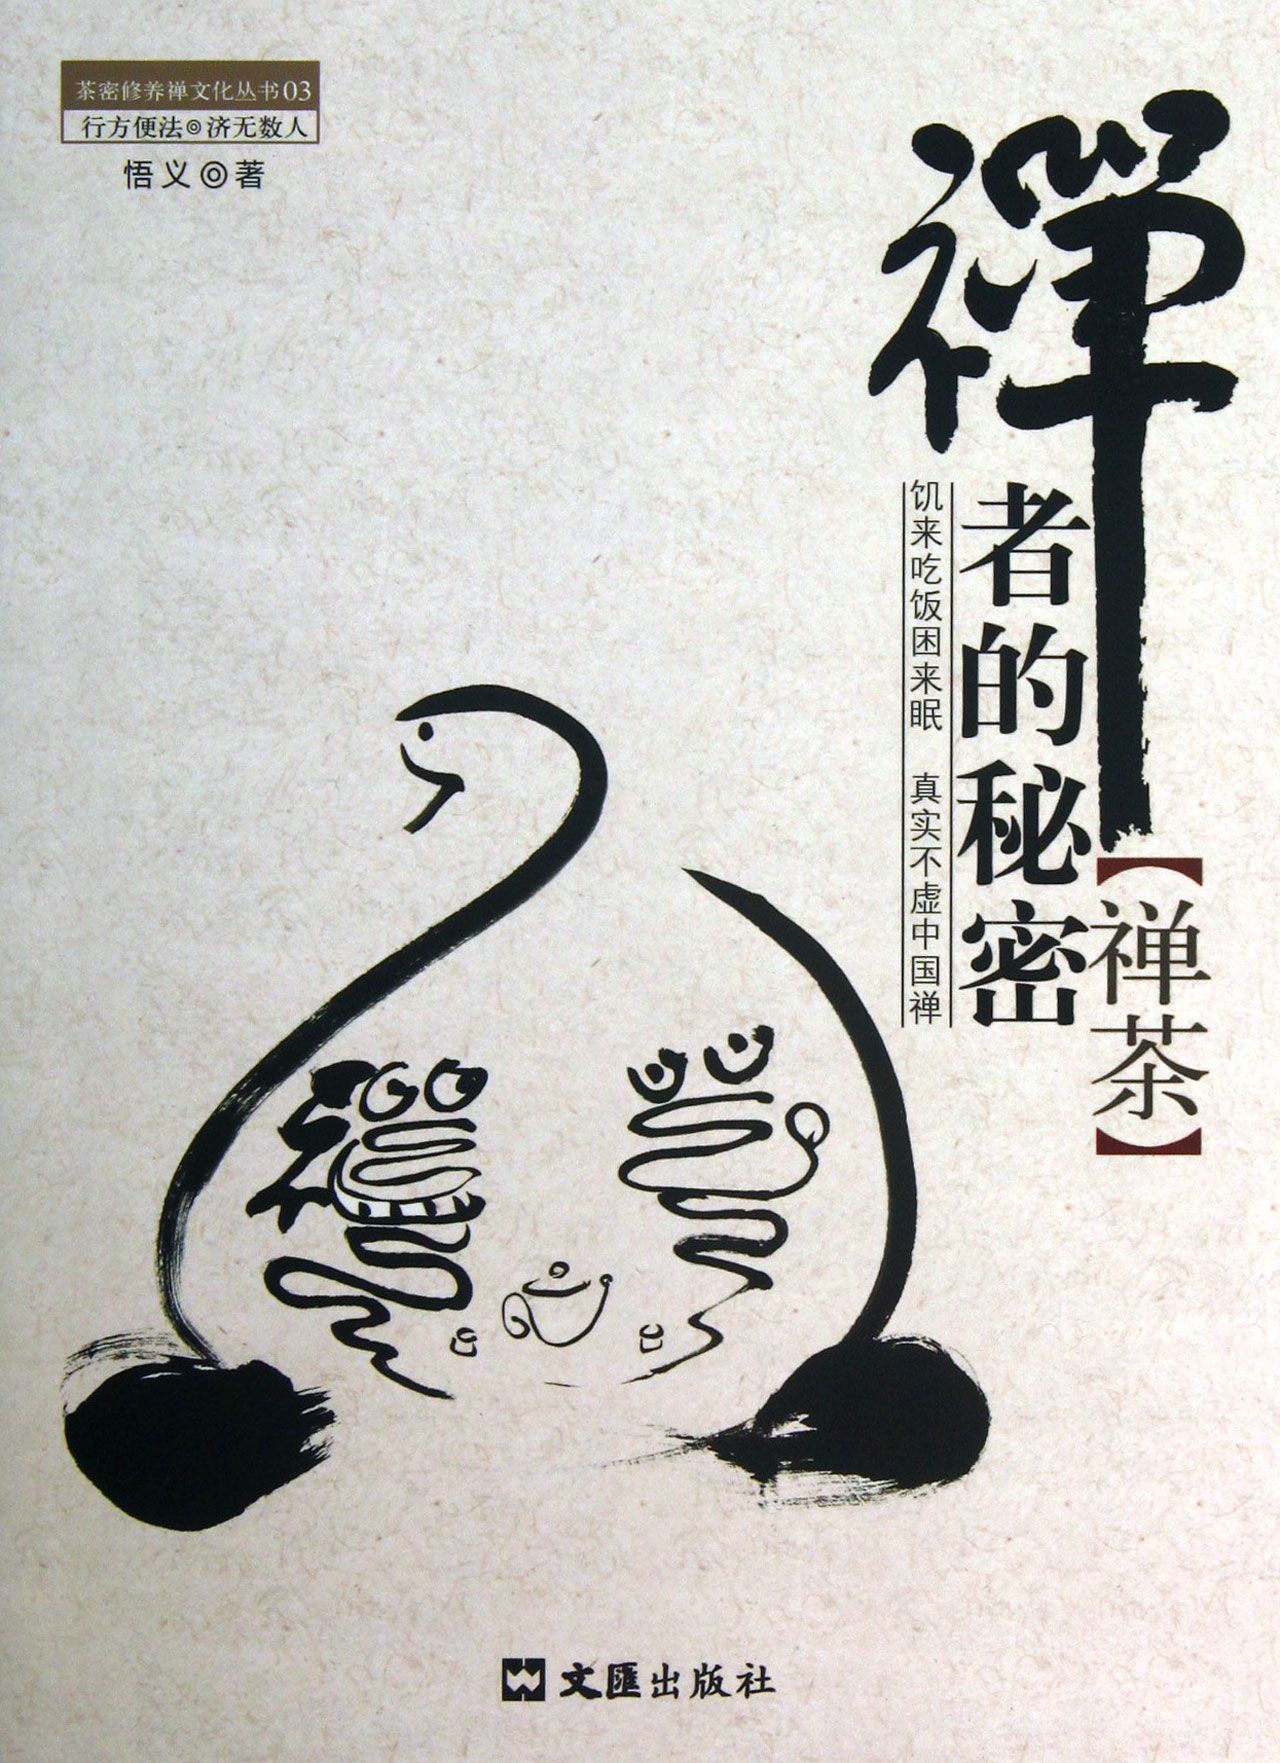 茶密修养禅文化丛书03
行方便法◎济无数人
悟义◎著
禪
者的秘密
【禅茶】
饥来吃饭困来眠 真实不虚中国禅
文匯出版社